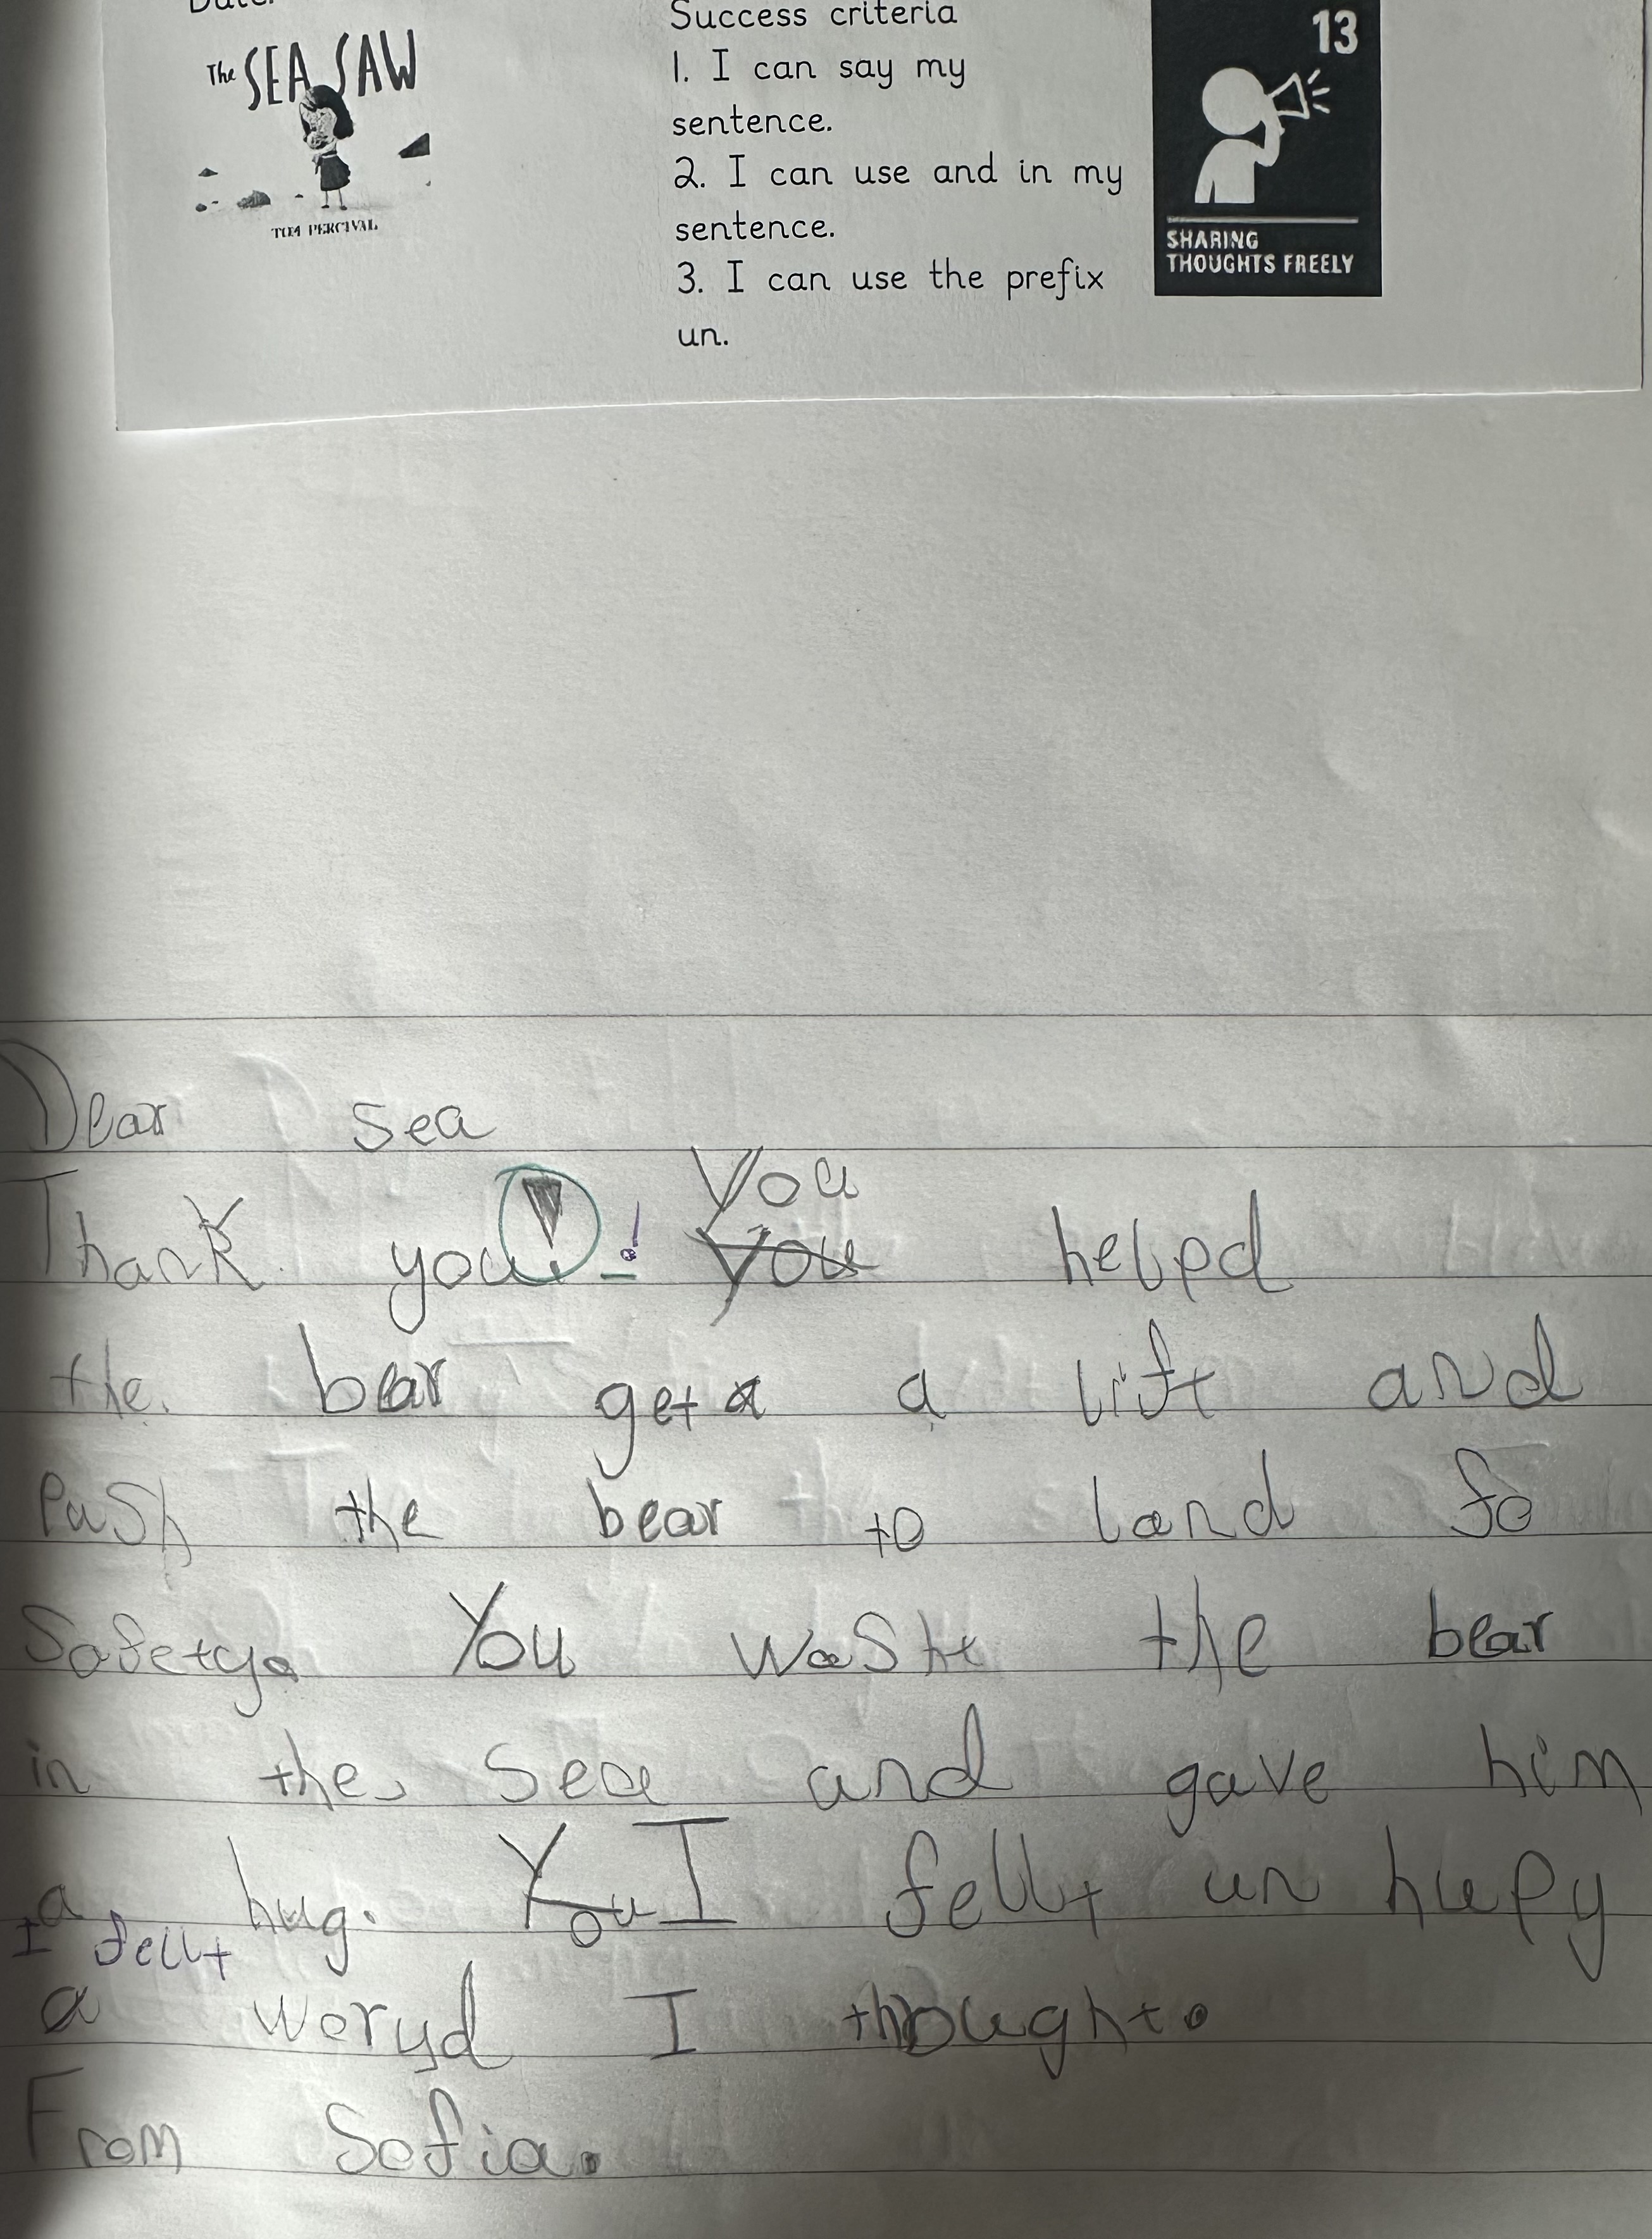 The SEA SAW
TOM PERCIVAL
Success criteria
1. I can say my
sentence.
2. I can use and in my
sentence.
3. I can use the prefix
un.
13
SHARING
THOUGHTS FREELY
Dear sea
Thank you! ! You you helpd
the bear get a a lift and
push the bear to land fo
Safety. You washt the bear
in the sea and gave him
a hug. You I fellt un hupy
I fellt
a woryd I thought.
From Sofia.